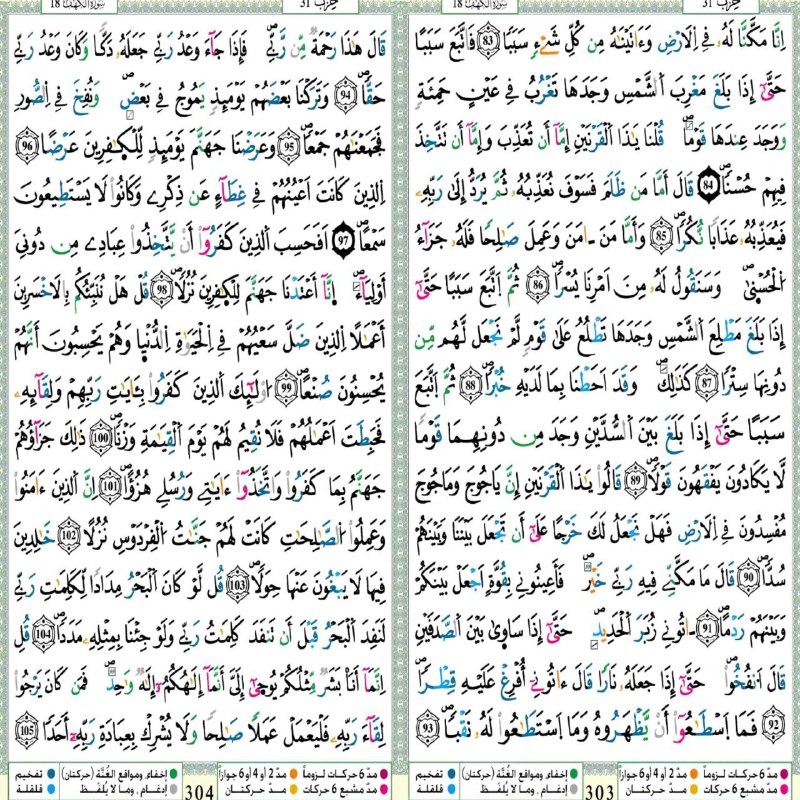 حِزْبُ 31
سُورَةُ الْكَهْفِ 18
إِنَّا مَكَّنَّا لَهُۥ فِے اِ۬لَارْضِ وَءَاتَيْنَٰهُ مِن كُلِّ شَےْءٖ سَبَباٗ 83 فَاتَّبَعَ سَبَباً
حَتَّىٰٓ إِذَا بَلَغَ مَغْرِبَ اَ۬لشَّمْسِ وَجَدَهَا تَغْرُبُ فِے عَيْنٍ حَمِئَةٖ
وَوَجَدَ عِندَهَا قَوْماٗ قُلْنَا يَٰذَا اَ۬لْقَرْنَيْنِ إِمَّآ أَن تُعَذِّبَ وَإِمَّآ أَن تَتَّخِذَ
فِيهِمْ حُسْناٗ 84 قَالَ أَمَّا مَن ظَلَمَ فَسَوْفَ نُعَذِّبُهُۥ ثُمَّ يُرَدُّ إِلَىٰ رَبِّهِۦ
فَيُعَذِّبُهُۥ عَذَاباٗ نُّكُراٗ 85 وَأَمَّا مَنَ اٰمَنَ وَعَمِلَ صَٰلِحاٗ فَلَهُۥ جَزَآءُ
اُ۬لْحُسْنَىٰ وَسَنَقُولُ لَهُۥ مِنَ اَمْرِنَا يُسْراٗ 86 ثُمَّ اَ۪تَّبَعَ سَبَباً حَتَّىٰٓ
إِذَا بَلَغَ مَطْلِعَ اَ۬لشَّمْسِ وَجَدَهَا تَطْلُعُ عَلَىٰ قَوْمٖ لَّمْ نَجْعَل لَّهُم مِّن
دُونِهَا سِتْراٗ 87 كَذَٰلِكَ وَقَدَ اَحَطْنَا بِمَا لَدَيْهِ خُبْراٗ 88 ثُمَّ اَ۪تَّبَعَ
سَبَباً حَتَّىٰٓ إِذَا بَلَغَ بَيْنَ اَ۬لسُّدَّيْنِ وَجَدَ مِن دُونِهِمَا قَوْماٗ
لَّا يَكَادُونَ يَفْقَهُونَ قَوْلاٗ 89 قَالُوا۟ يَٰذَا اَ۬لْقَرْنَيْنِ إِنَّ يَاجُوجَ وَمَاجُوجَ
مُفْسِدُونَ فِے اِ۬لَارْضِ فَهَلْ نَجْعَلُ لَكَ خَرْجاً عَلَىٰٓ أَن تَجْعَلَ بَيْنَنَا وَبَيْنَهُمْ
سُدّاٗ 90 قَالَ مَا مَكَّنِّے فِيهِ رَبِّے خَيْرٞ فَأَعِينُونِے بِقُوَّةٍ اَجْعَلْ بَيْنَكُمْ
وَبَيْنَهُمْ رَدْماً 91 اٰتُونِے زُبَرَ اَ۬لْحَدِيدِ حَتَّىٰٓ إِذَا سَاوَىٰ بَيْنَ اَ۬لصَّدَفَيْنِ
قَالَ اَ۟نفُخُوا۟ حَتَّىٰٓ إِذَا جَعَلَهُۥ نَاراٗ قَالَ ءَاتُونِے أُفْرِغْ عَلَيْهِ قِطْراٗ
92 فَمَا اَ۪سْطَٰعُوٓا۟ أَنْ يَّظْهَرُوهُ وَمَا اَ۪سْتَطَٰعُوا۟ لَهُۥ نَقْباٗ 93
مدّ 6 حركات لزوماً
مدّ 2 أو 4 أو 6 جوازاً
إخفاء، ومواقع الغُنَّة (حركتان)
تفخيم
مدّ مشبع 6 حركات
مدّ حركتان
إدغام، وما لا يُلفظ
قلقلة
303
حِزْبُ 31
سُورَةُ الْكَهْفِ 18
قَالَ هَٰذَا رَحْمَةٞ مِّن رَّبِّے فَإِذَا جَآءَ وَعْدُ رَبِّے جَعَلَهُۥ دَكّاٗ وَكَانَ وَعْدُ رَبِّے
حَقّاٗ 94 وَتَرَكْنَا بَعْضَهُمْ يَوْمَئِذٖ يَمُوجُ فِے بَعْضٖ وَنُفِخَ فِے اِ۬لصُّورِ
فَجَمَعْنَٰهُمْ جَمْعاٗ 95 وَعَرَضْنَا جَهَنَّمَ يَوْمَئِذٖ لِّلْكَٰفِرِينَ عَرْضاً 96
اِ۬لذِينَ كَانَتَ اَعْيُنُهُمْ فِے غِطَآءٍ عَن ذِكْرِے وَكَانُوا۟ لَا يَسْتَطِيعُونَ
سَمْعاً 97 اَفَحَسِبَ اَ۬لذِينَ كَفَرُوٓا۟ أَنْ يَّتَّخِذُوا۟ عِبَادِے مِن دُونِيَ
أَوْلِيَآءَ اِنَّآ أَعْتَدْنَا جَهَنَّمَ لِلْكَٰفِرِينَ نُزُلاٗ 98 قُلْ هَلْ نُنَبِّئُكُم بِالَاخْسَرِينَ
أَعْمَٰلاً اِ۬لذِينَ ضَلَّ سَعْيُهُمْ فِے اِ۬لْحَيَوٰةِ اِ۬لدُّنْيَا وَهُمْ يَحْسِبُونَ أَنَّهُمْ
يُحْسِنُونَ صُنْعاً 99 ا۟وْلَٰٓئِكَ اَ۬لذِينَ كَفَرُوا۟ بِـَٔايَٰتِ رَبِّهِمْ وَلِقَآئِهِۦ
فَحَبِطَتَ اَعْمَٰلُهُمْ فَلَا نُقِيمُ لَهُمْ يَوْمَ اَ۬لْقِيَٰمَةِ وَزْناٗ 100 ذَٰلِكَ جَزَآؤُهُمْ
جَهَنَّمُ بِمَا كَفَرُوا۟ وَاتَّخَذُوٓا۟ ءَايَٰتِے وَرُسُلِے هُزُؤاً 101 اِنَّ اَ۬لذِينَ ءَامَنُوا۟
وَعَمِلُوا۟ اُ۬لصَّٰلِحَٰتِ كَانَتْ لَهُمْ جَنَّٰتُ اُ۬لْفِرْدَوْسِ نُزُلاً 102 خَٰلِدِينَ
فِيهَا لَا يَبْغُونَ عَنْهَا حِوَلاٗ 103 قُل لَّوْ كَانَ اَ۬لْبَحْرُ مِدَاداٗ لِّكَلِمَٰتِ رَبِّے
لَنَفِدَ اَ۬لْبَحْرُ قَبْلَ أَن تَنفَدَ كَلِمَٰتُ رَبِّے وَلَوْ جِئْنَا بِمِثْلِهِۦ مَدَداٗ 104 قُلِ
اِنَّمَآ أَنَا۠ بَشَرٞ مِّثْلُكُمْ يُوحَىٰٓ إِلَيَّ أَنَّمَآ إِلَٰهُكُمُۥٓ إِلَٰهٞ وَٰحِدٞ فَمَن كَانَ يَرْجُوا۟
لِقَآءَ رَبِّهِۦ فَلْيَعْمَلْ عَمَلاٗ صَٰلِحاٗ وَلَا يُشْرِكْ بِعِبَادَةِ رَبِّهِۦٓ أَحَداٗ 105
مدّ 6 حركات لزوماً
مدّ 2 أو 4 أو 6 جوازاً
إخفاء، ومواقع الغُنَّة (حركتان)
تفخيم
مدّ مشبع 6 حركات
مدّ حركتان
إدغام، وما لا يُلفظ
قلقلة
304